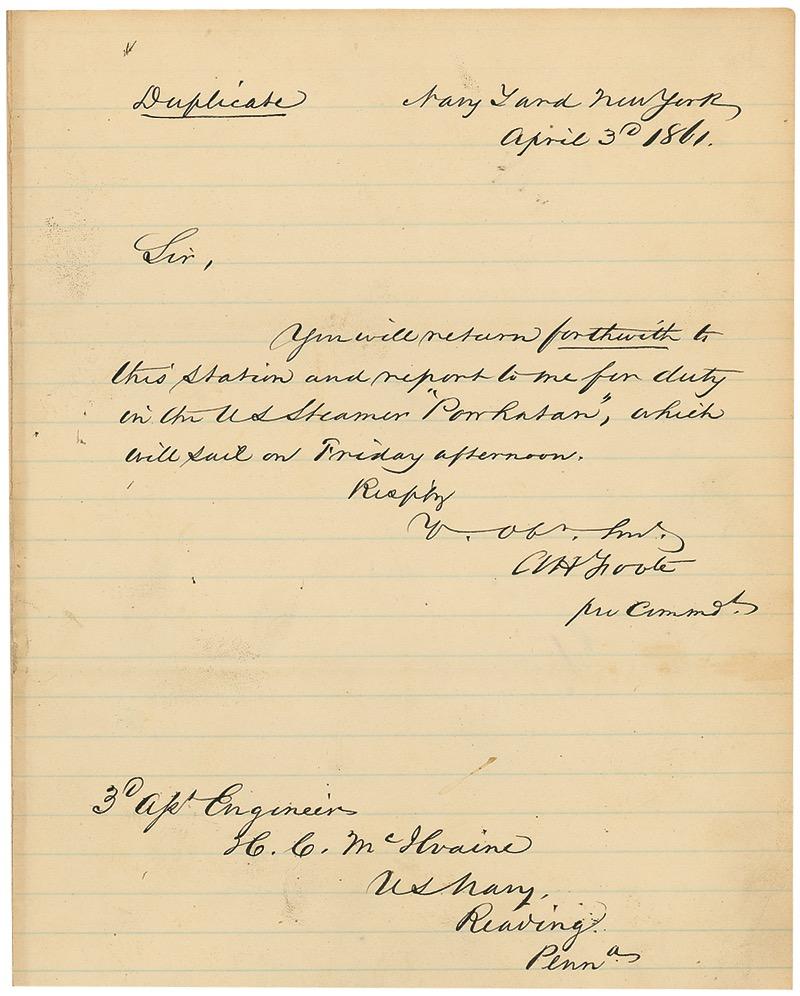 Duplicate Navy Yard New York
April 3d 1861.
Sir,
You will return forthwith to
this station and report to me for duty
in the US Steamer "Powhatan", which
will sail on Friday afternoon.
Respy
Y. Obt. Srvt.
A H Foote
pro Commdt.
3d Asst Engineer
H. C. McIlvaine
US Navy.
Reading.
Penna